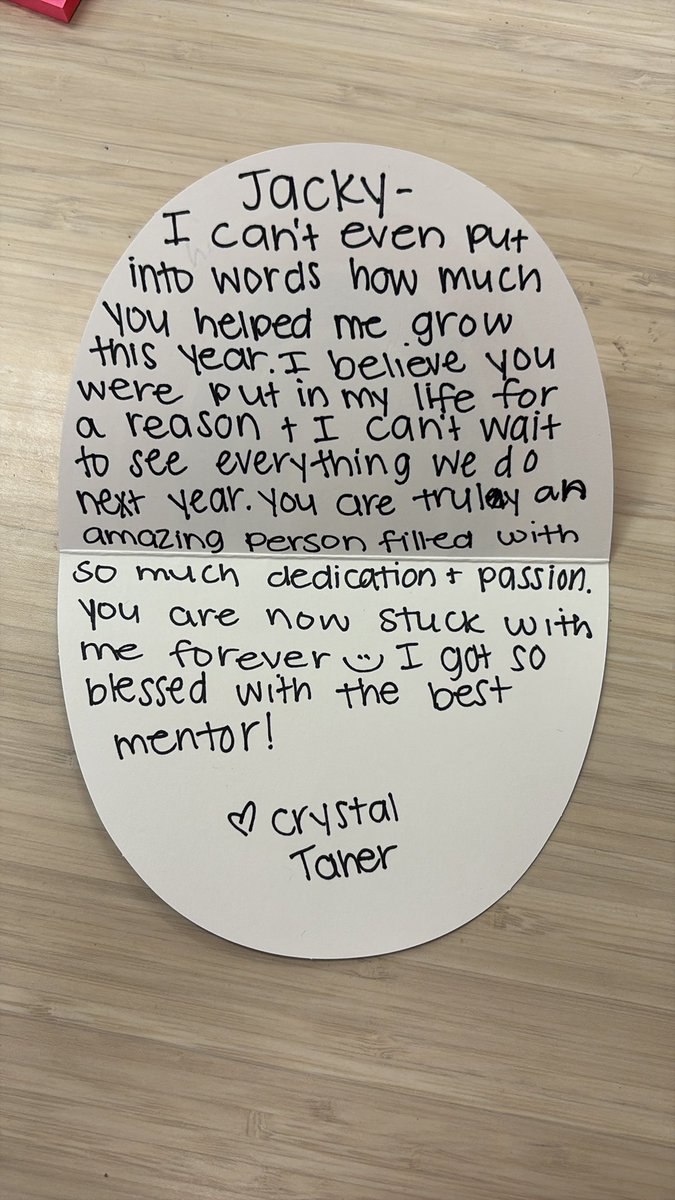 Jacky-
I can't even put
into words how much
you helped me grow
this year. I believe you
were put in my life for
a reason + I can't wait
to see everything we do
next year. You are truly an
amazing person filled with
so much dedication + passion.
You are now stuck with
me forever I got so
blessed with the best
mentor!
♡ Crystal
Taner